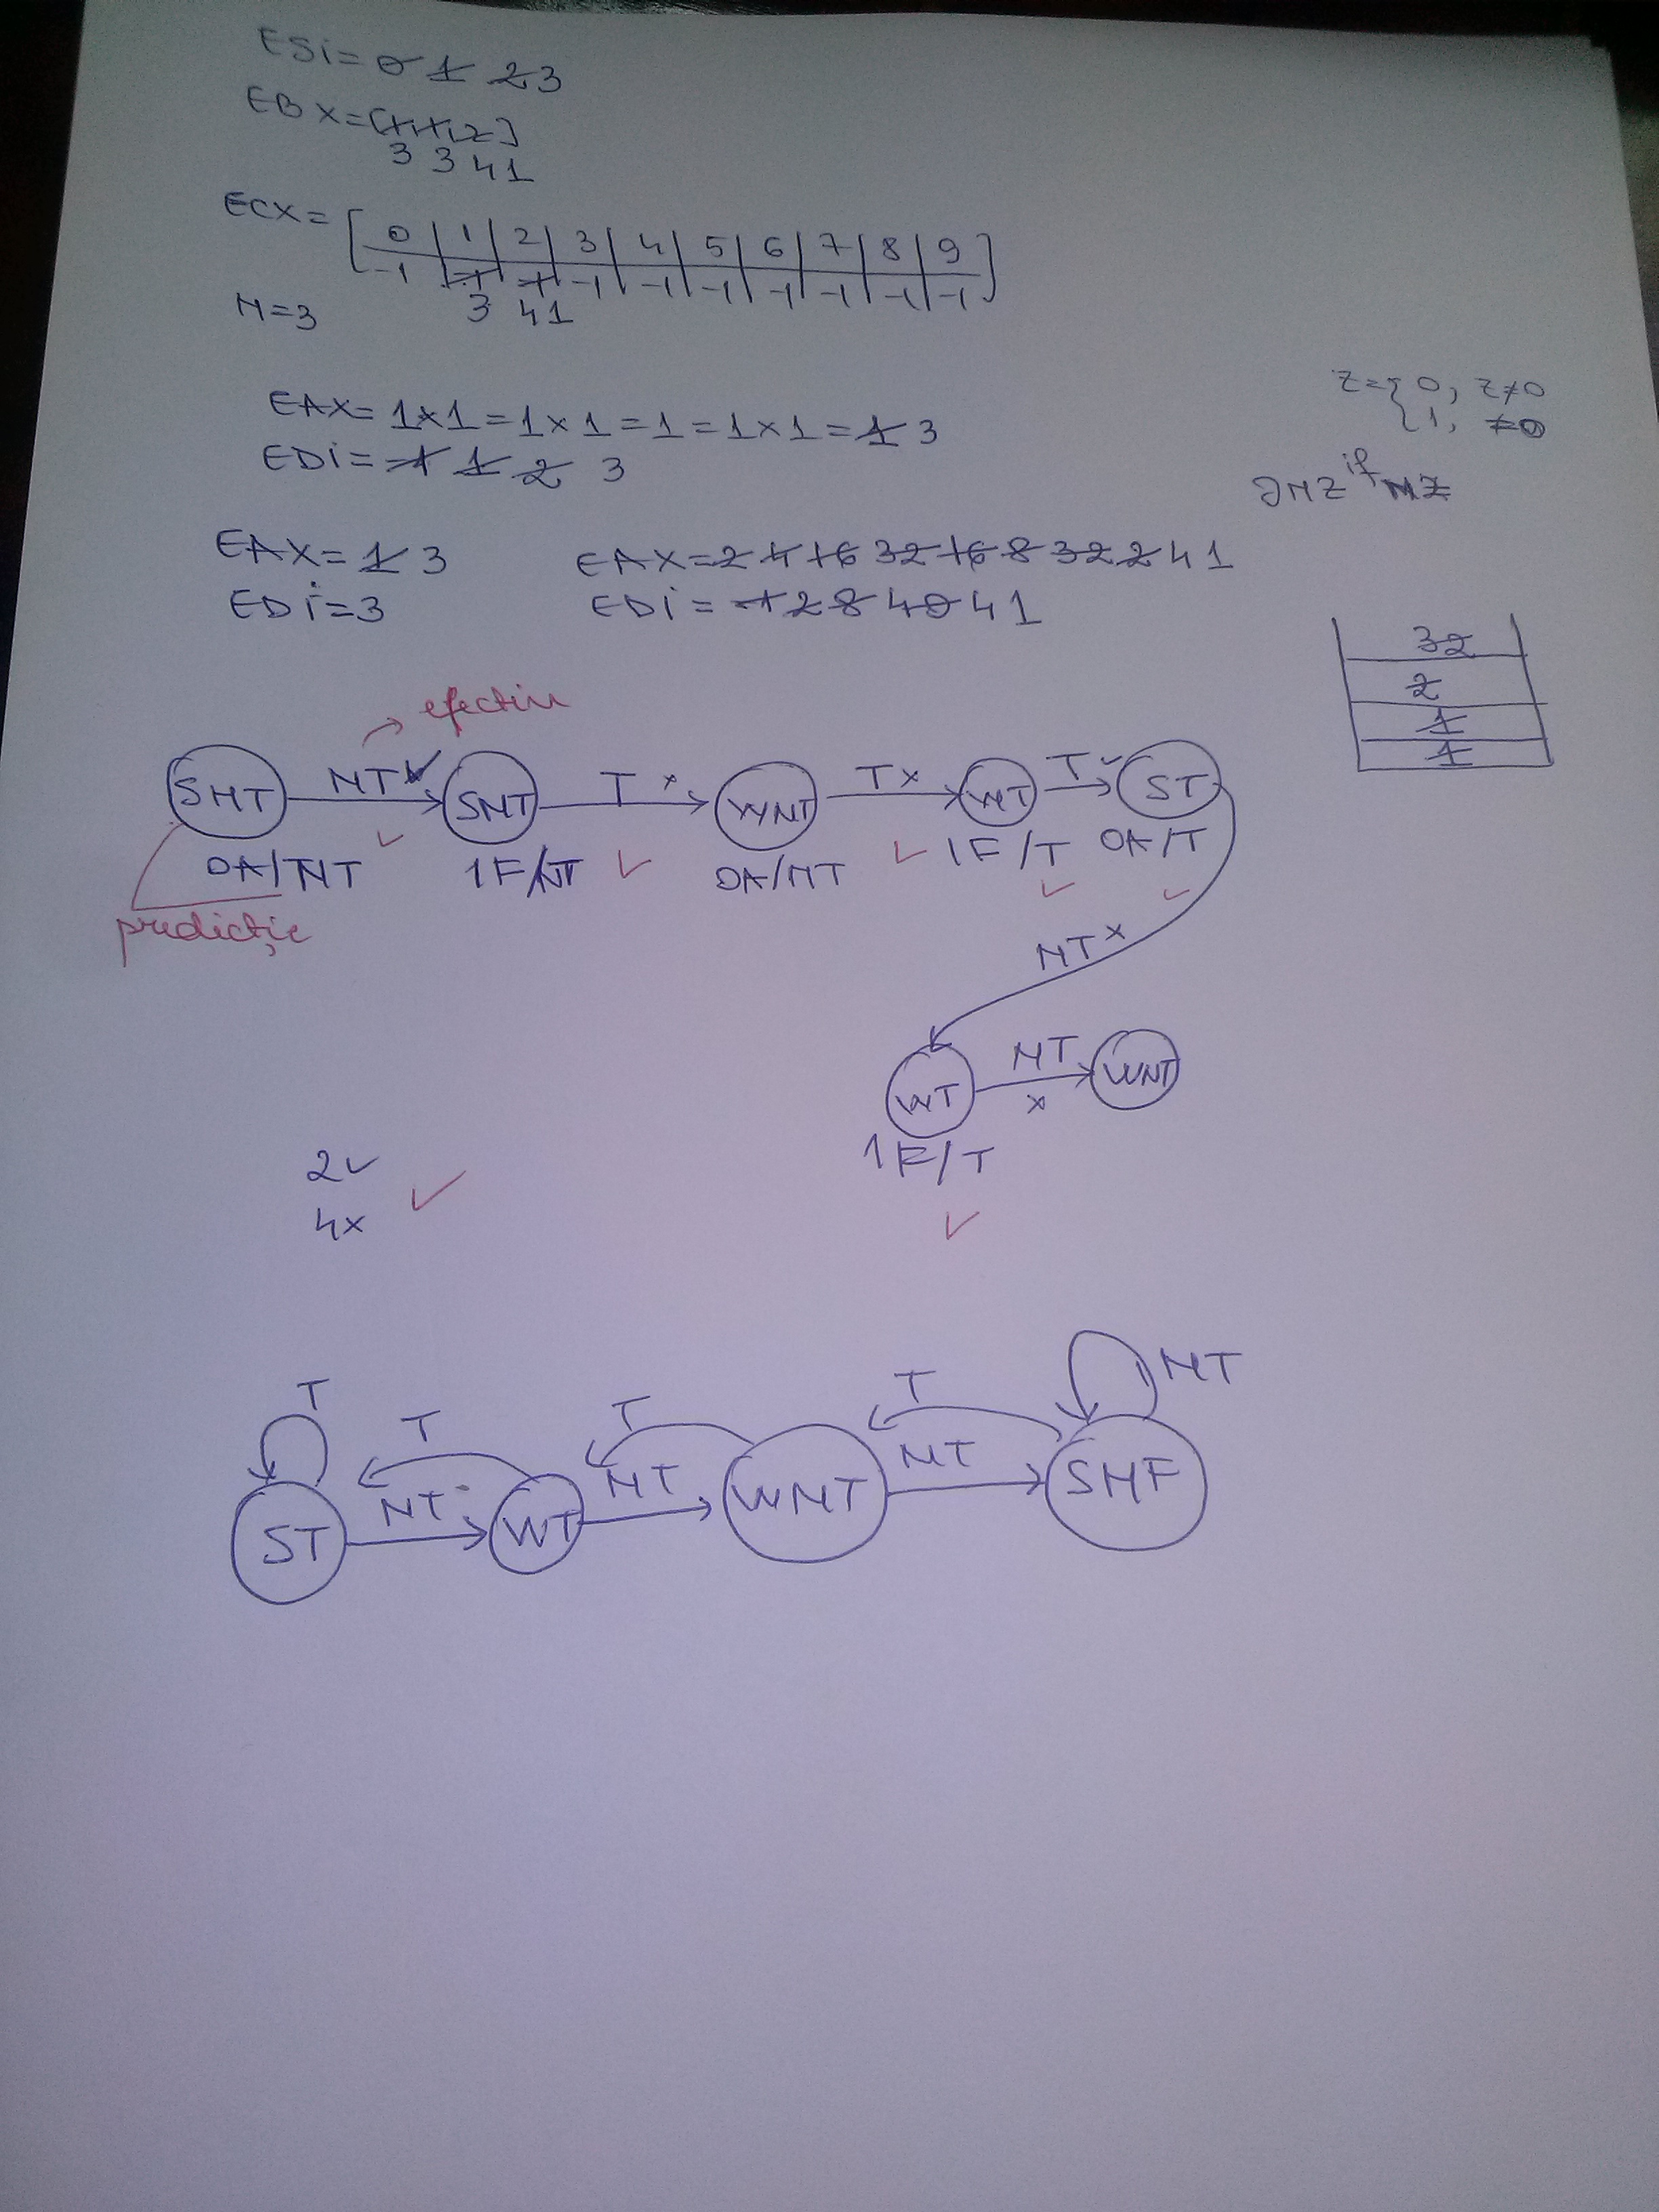 ESi= 0 1 2 3
EBX=[1,1,2]
3 3 41
ECX= [ 0 | 1 | 2 | 3 | 4 | 5 | 6 | 7 | 8 | 9 ]
-1 | -1 | -1 | -1 | -1 | -1 | -1 | -1 | -1 | -1
3 41
N=3
Z={ 0, Z≠0
{ 1, =0
EAX= 1x1=1x1=1=1x1=1 3
EDi= -1 1 2 3
JNZ if NZ
EAX= 1 3
EDi=3
EAX=2 4 16 32 16 8 32 2 41
EDi= -1 2 8 40 41
32
2
1
1
efectiv
SNT NT✓ SNT T x WNT Tx WT T✓ ST
0A/NT ✓ 1F/NT ✓ 0A/NT ✓ 1F/T ✓ 0A/T ✓
predicție
NT x
WT NT x WNT
1F/T
✓
2✓
4x ✓
T T T T NT
NT NT NT
ST WT WNT SNF